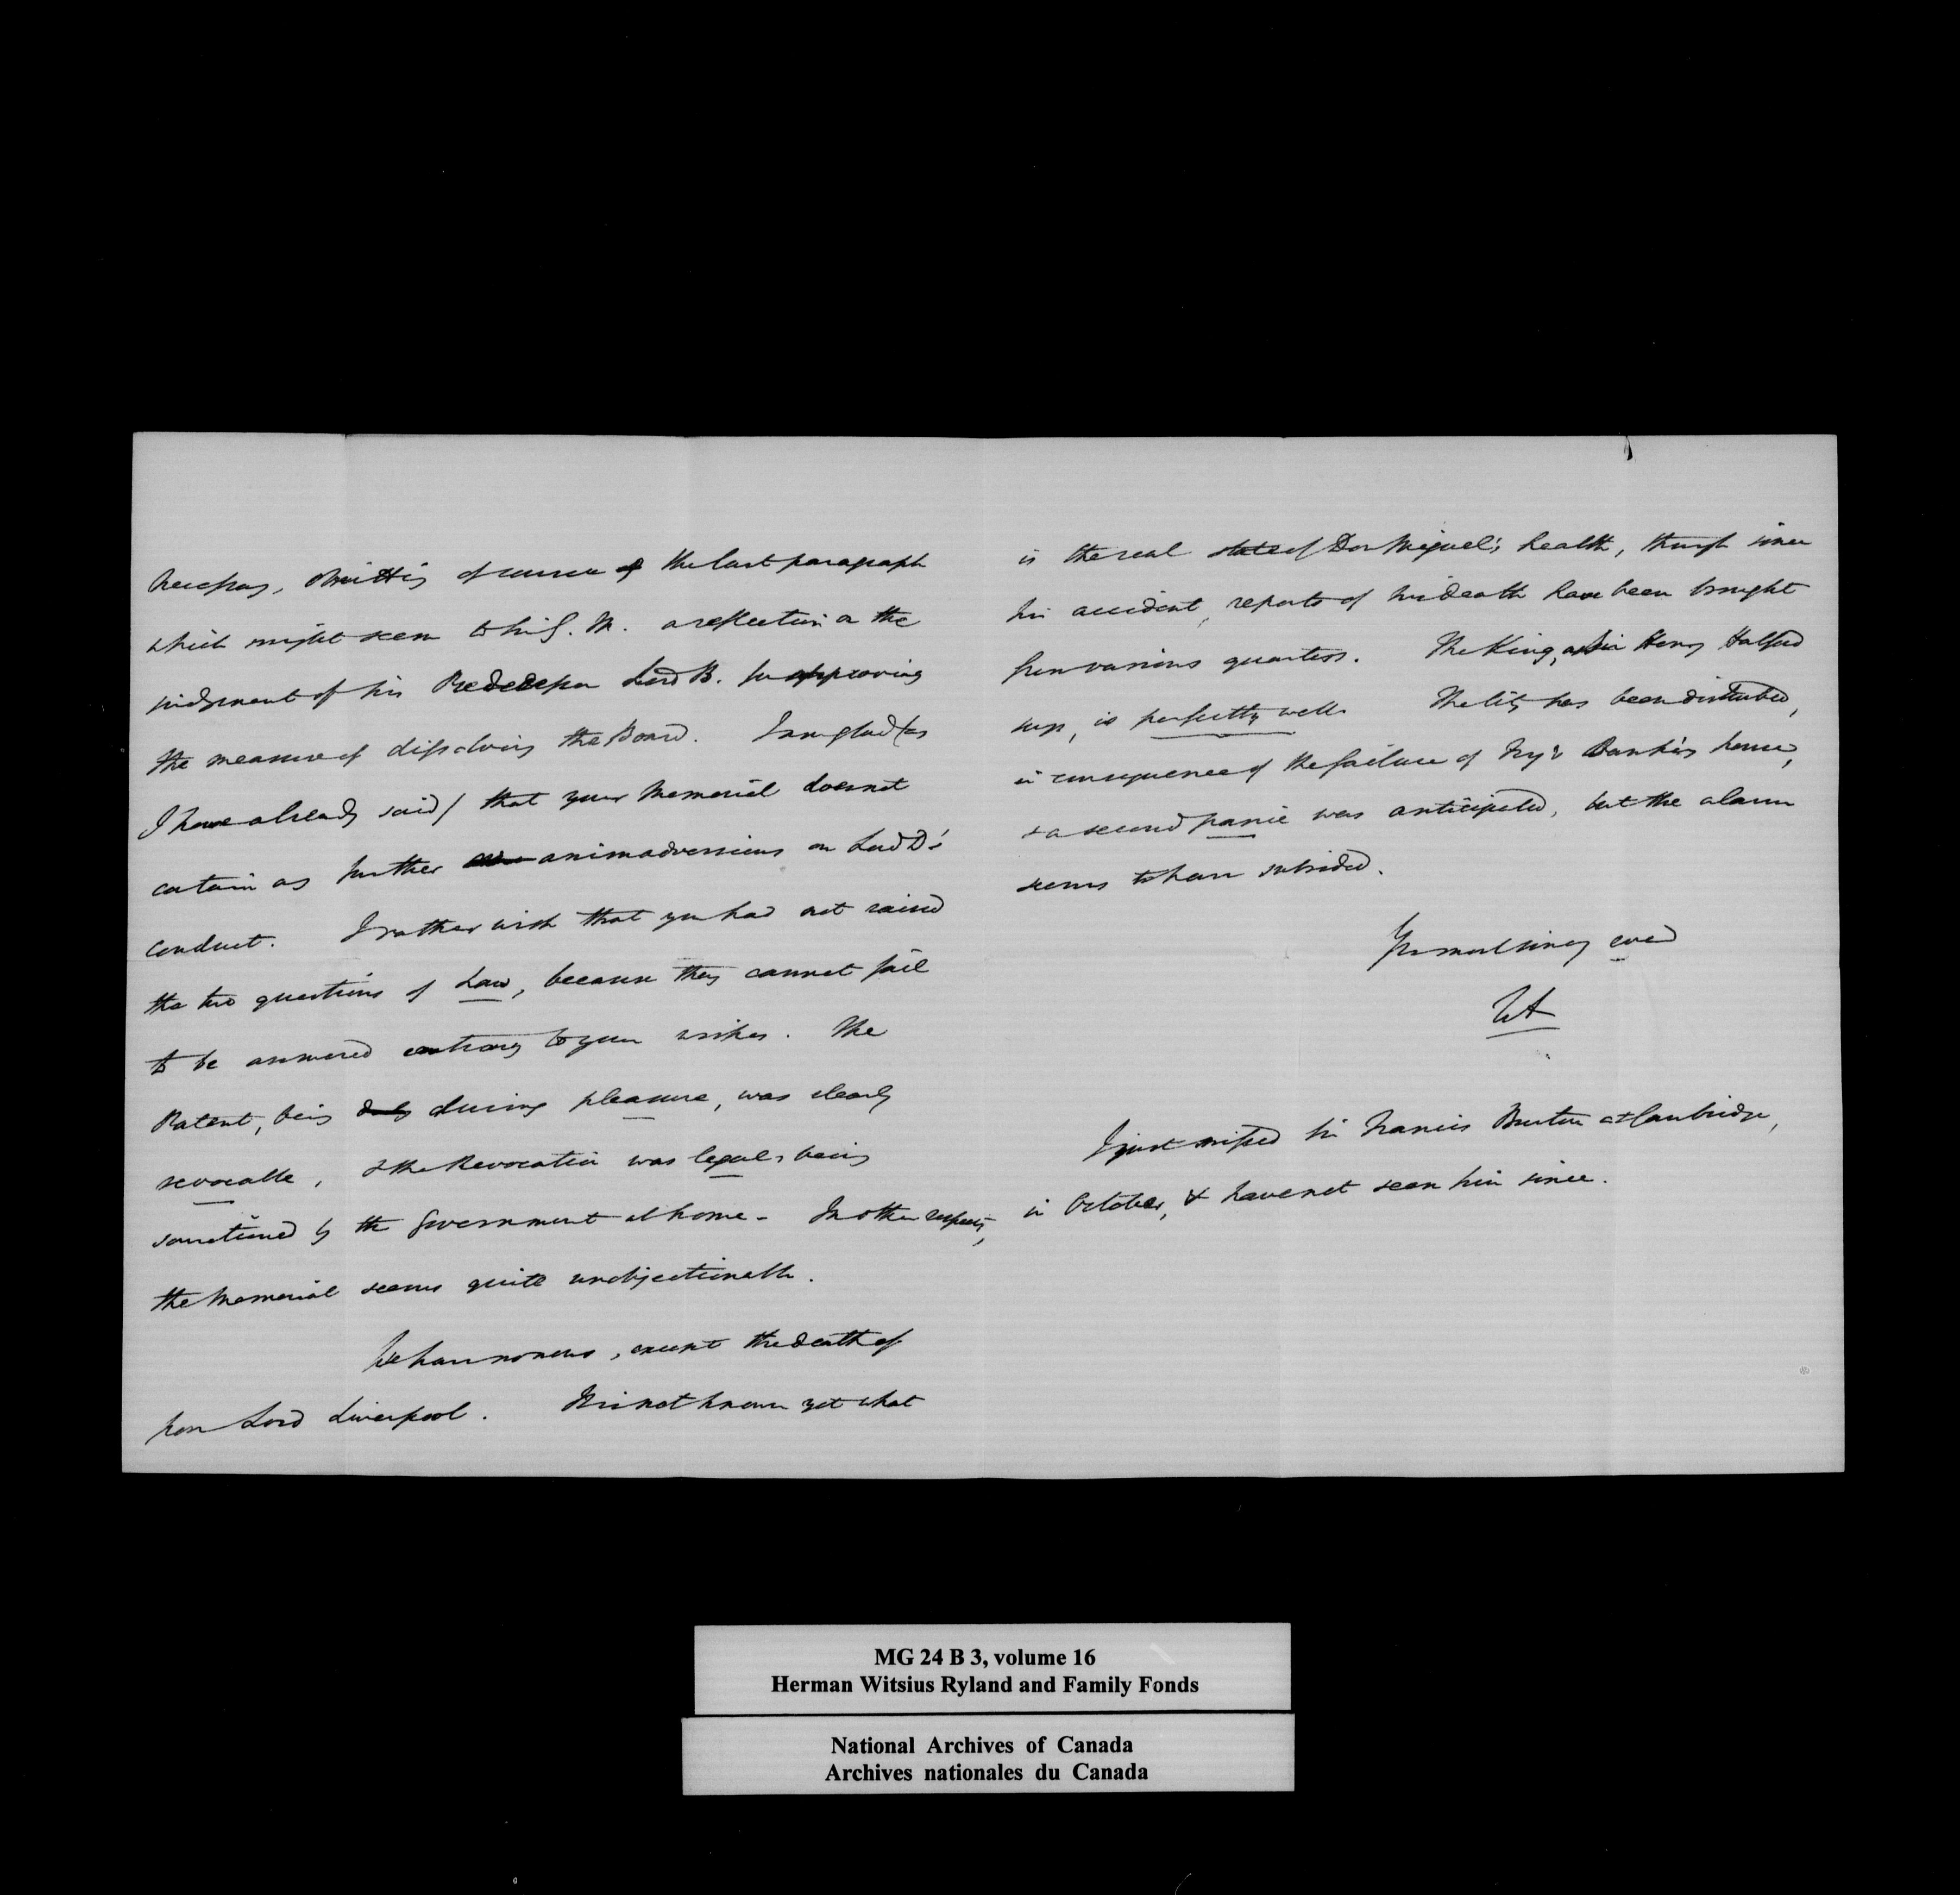 necessary, omitting of course of the last paragraph
which might seem to his G. M. a reflection on the
judgment of his Predecessor Lord B. for approving
the measure of dissolving the Board. I am glad (as
I have already said) that your Memorial does not
contain as further animadversions on Lord D's
conduct. I rather wish that you had not raised
the two questions of Law, because they cannot fail
to be answered contrary to your wishes. The
Patent, being during pleasure, was clearly
revocable, & the Revocation was legal, being
sanctioned by the Government at home - In other respects,
the Memorial seems quite unobjectionable.
We have no news, except the death of
poor Lord Liverpool. It is not known yet what
is the real state of Don Miguel's health, though since
his accident, reports of his death have been brought
from various quarters. The King, as Sir Henry Halford
says, is perfectly well. The City has been disturbed,
in consequence of the failure of Fry's Banking house,
& a second panic was anticipated, but the alarm
seems to have subsided.
Yrs most sincerely ever
I just missed Sir Francis Burton at Cambridge,
in October, & have not seen him since.
MG 24 B 3, volume 16
Herman Witsius Ryland and Family Fonds
National Archives of Canada
Archives nationales du Canada